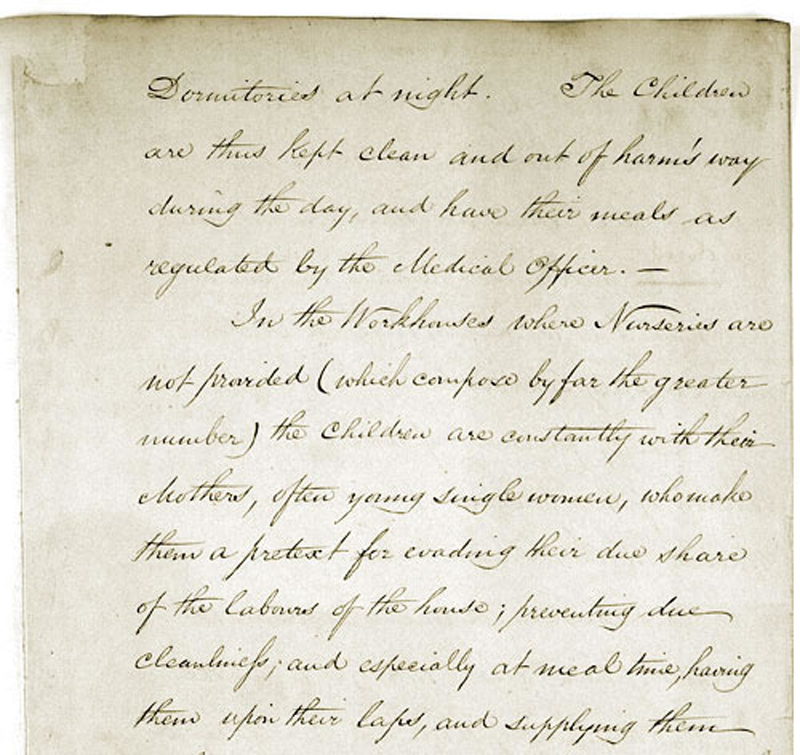 Dormitories at night. The Children
are thus kept clean and out of harm's way
during the day, and have their meals as
regulated by the Medical Officer. —
In the Workhouses where Nurseries are
not provided (which compose by far the greater
number) the Children are constantly with their
Mothers, often young single women, who make
them a pretext for evading their due share
of the labours of the house; preventing due
cleanliness; and especially at meal time, having
them upon their laps, and supplying them